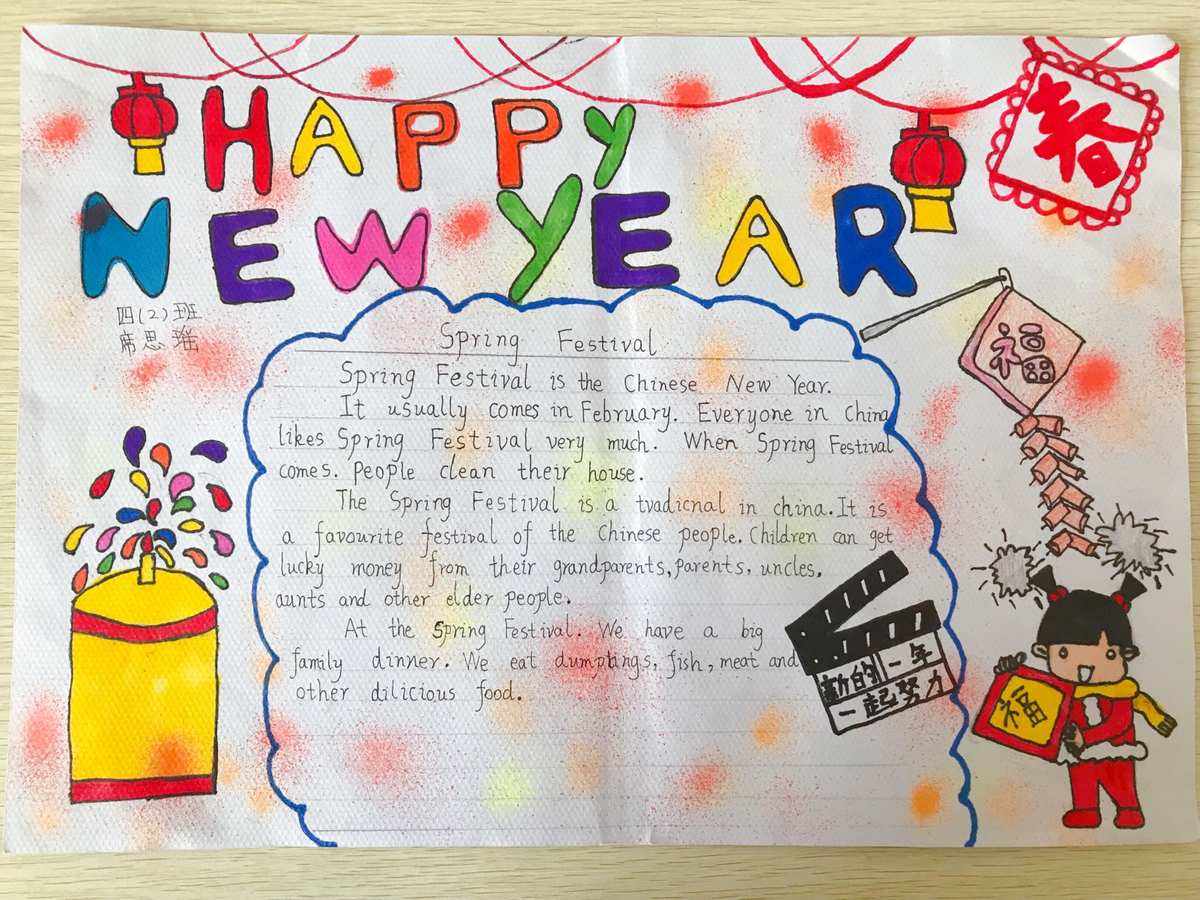 HAPPY
春
NEW YEAR
四(2)班
席思瑶
福
Spring Festival
Spring Festival is the Chinese New Year.
It usually comes in February. Everyone in China
likes Spring Festival very much. When Spring Festival
comes. People clean their house.
The Spring Festival is a tvadicnal in china. It is
a favourite festival of the Chinese people. Children can get
lucky money from their grandparents, parents, uncles,
aunts and other elder people.
At the Spring Festival. We have a big
family dinner. We eat dumptings, fish, meat and
other dilicious food.
的一年
一起努力
福